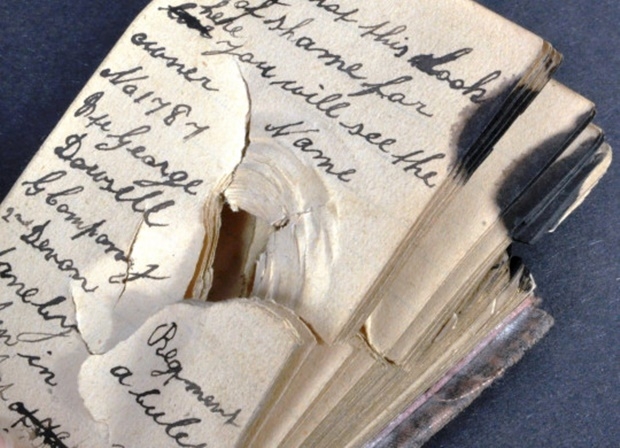 this look
of shame for
here you will see the
owner Name
No 1787
Pte George
Dowsell
G Company
2nd Devon Regiment
a
in